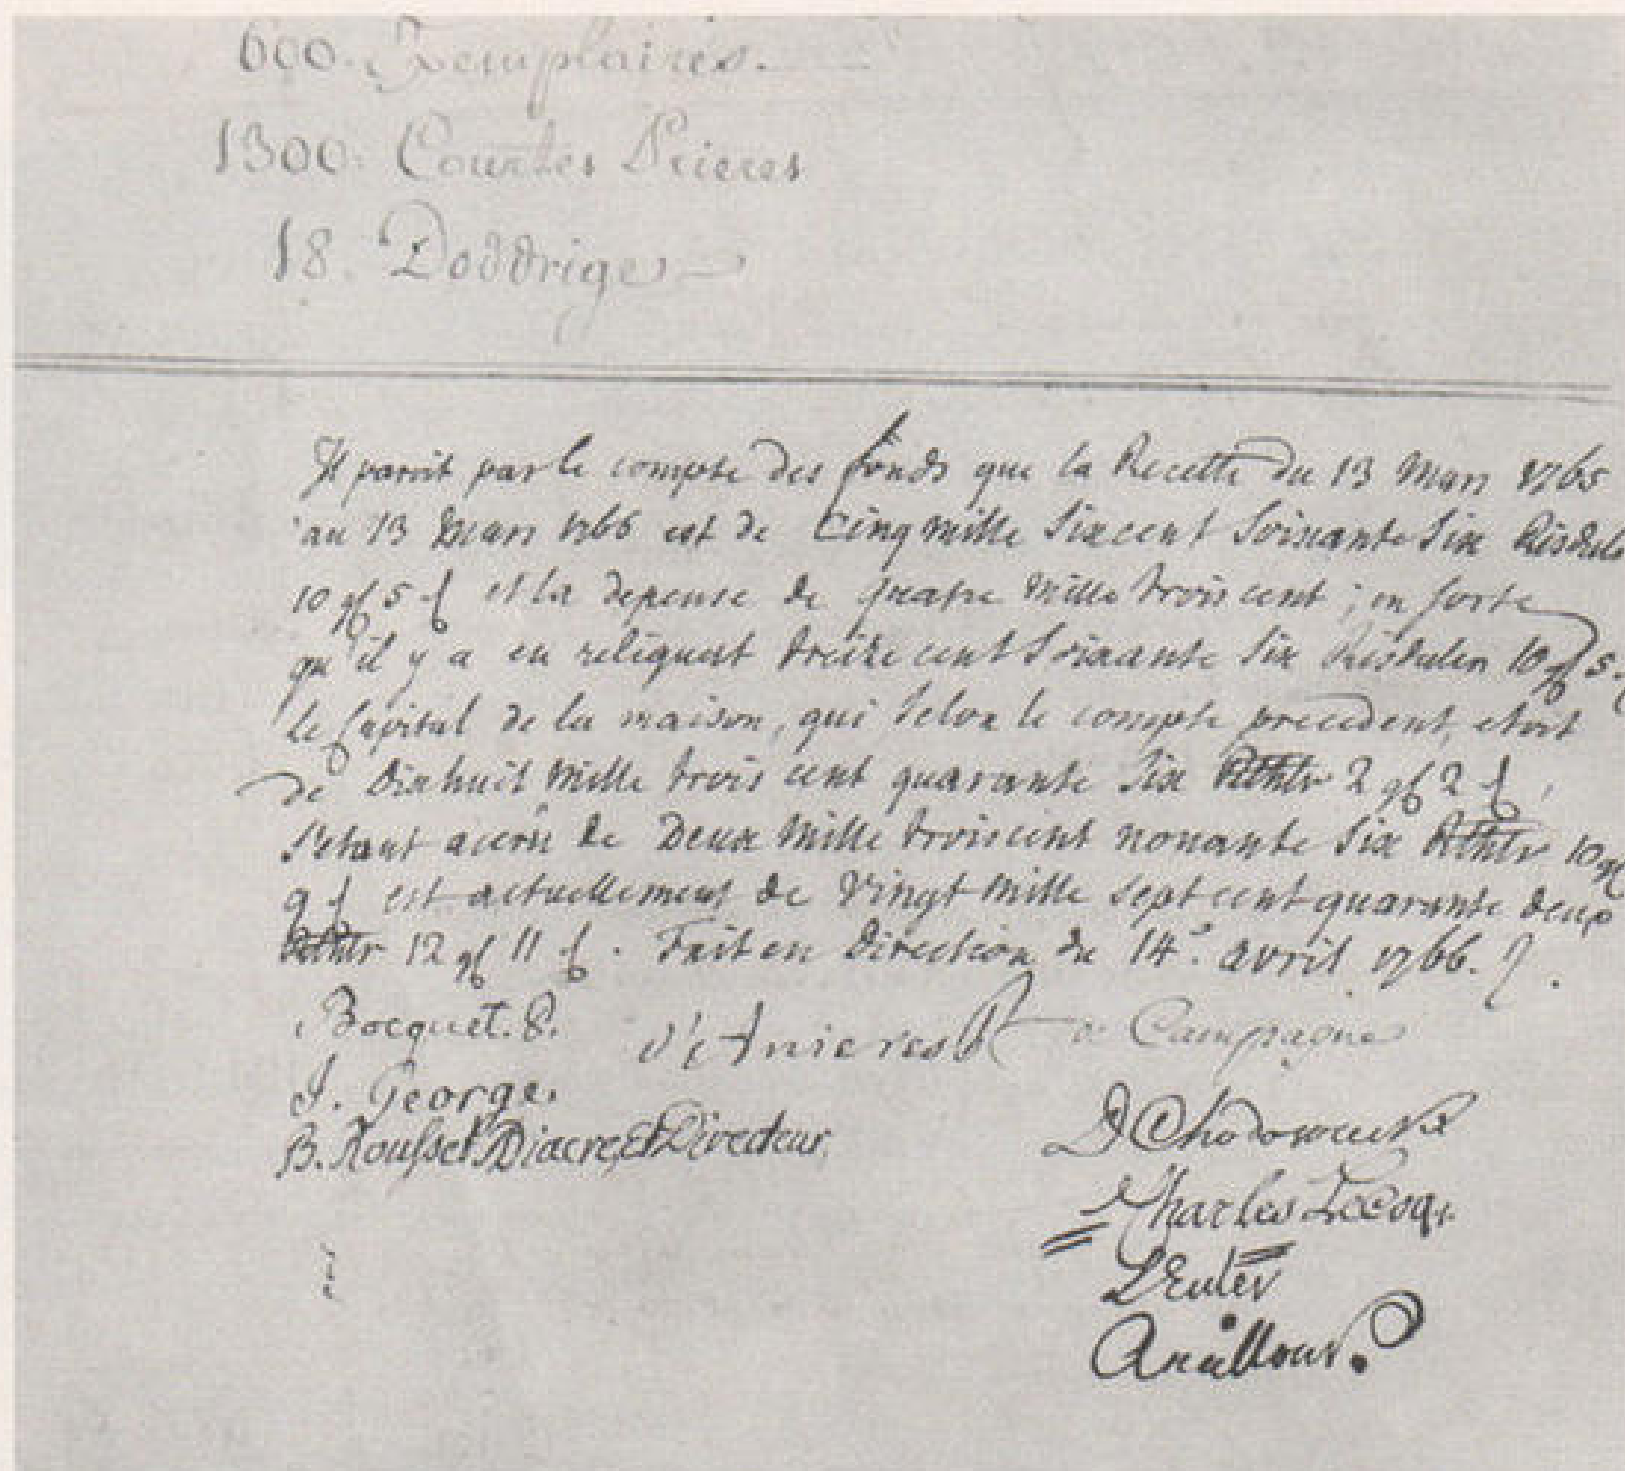 600. Exemplaires.
1300. Courtes Prieres
18. Doddrige
Il paroit par le compte des fonds que la Recette du 13 Mars 1765
au 13 Mars 1766 est de Cinq mille Sixcent Soixante Six Risdale
10 gl 5 f et la depense de quatre mille trois cent ; en sorte
qu'il y a en reliquat treize cent Soixante Six Risdalen 10 gl 5
le Capital de la maison, qui selon le compte precedent, etoit
de Dixhuit mille trois cent quarante Six Rthlr 2 gl 2 f,
s'etant accru de Deux mille troiscent nonante Six Rthlr 10 gl
9 f est actuellement de Vingt mille Sept cent quarante deux
Rthlr 12 gl 11 f. Fait en Direction du 14e. avril 1766.
Bocquet. P. d'Anieres Campagne
J. George.
B. Rousset Diacre, Et Directeur.
D Chodowiecki
Charles LeCoq.
L Euler
Ancillon.